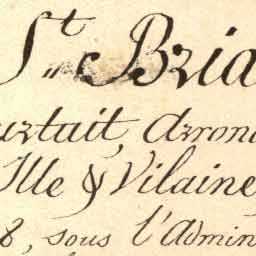 St Bria
urtait, Arron
Ille & Vilaine
8, sous l'Admin